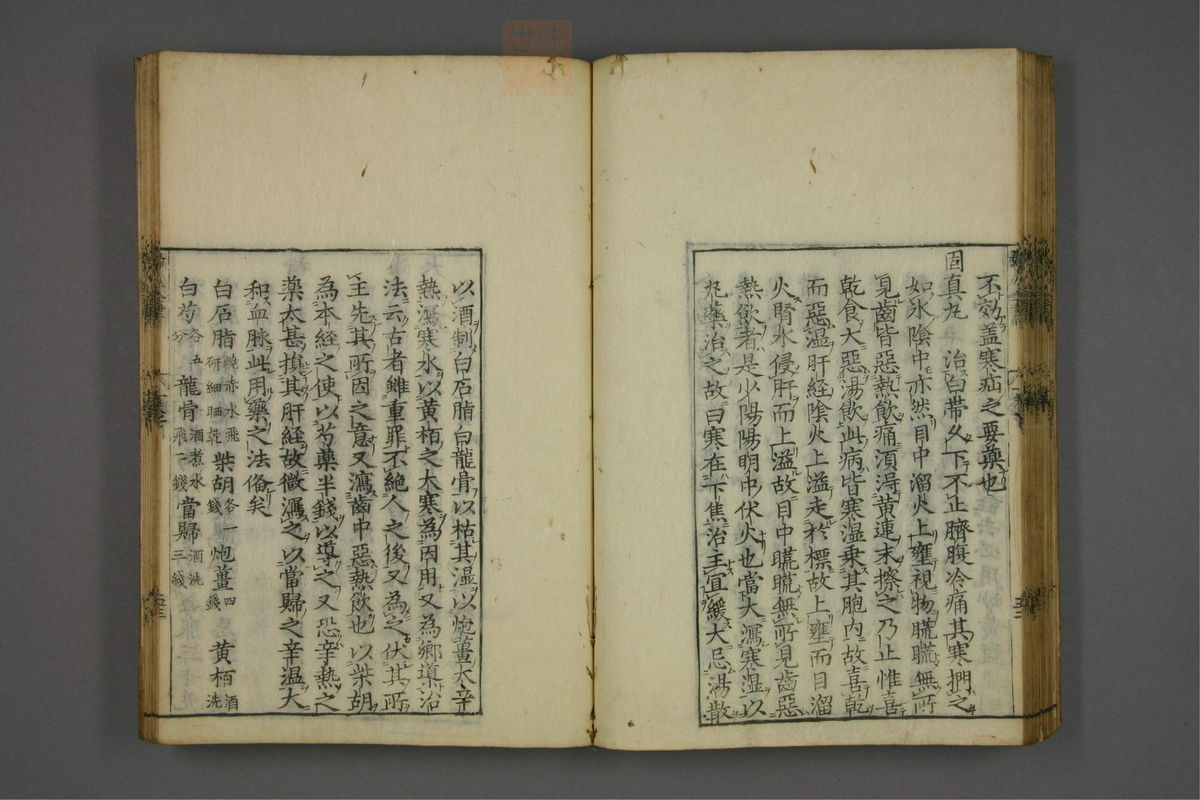 不效蓋寒疝之要藥也
固真丸　治白帶久下不止臍腹冷痛其寒捫之
如氷陰中亦然目中溜火上壅視物䀮䀮無所
見齒皆惡熱飲痛須得黄連末擦之乃止惟喜
乾食大惡湯飲此病皆寒濕乗其胞内故喜乾
而惡濕肝經陰火上溢走於標故上壅而目溜
火腎水侵肝而上溢故目中䀮䀮無所見齒惡
熱飲者是少陽陽明中伏火也當大瀉寒濕以
丸藥治之故曰寒在下焦治主宜緩大忌湯散
以酒制白石脂白龍骨以枯其濕以炮薑大辛
熱瀉寒水以黄栢之大寒為因用又為鄉導治
法云古者雖重罪不絶人之後又為之伏其所
主先其所因之意又瀉齒中惡熱飲也以柴胡
為本經之使以芍藥半錢以導之又恐辛熱之
藥太甚損其肝經故微瀉之以當歸之辛温大
和血脉此用藥之法偹矣
白石脂燒赤水飛研細晒乾　柴胡各一錢　炮薑四錢　黄栢酒洗
白芍各五分　龍骨酒煮水飛二錢　當歸酒洗三錢